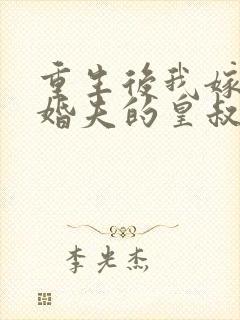 重生後我嫁
婚夫的皇叔
李光杰